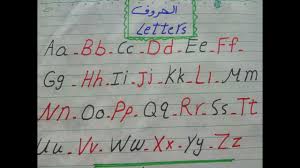 الحروف
Letters
Aa - Bb - Cc - Dd - Ee - Ff -
Gg - Hh - Ii - Jj - Kk - Ll - Mm
Nn - Oo - Pp - Qq - Rr - Ss - Tt
Uu - Vv - Ww - Xx - Yy - Zz